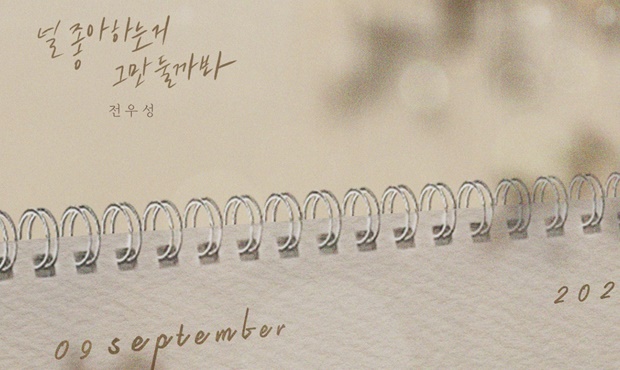 널 좋아하는거
그만 둘까봐
전우성
202
09 september